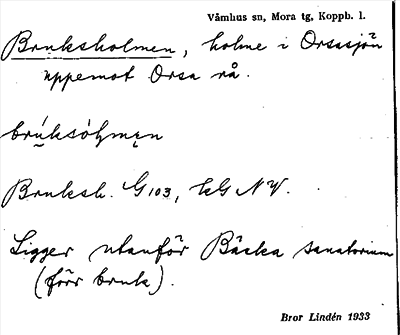 Våmhus sn, Mora tg, Koppb. l.
Bruksholmen, holme i Orsasjön
uppemot Orsa rå.
Bruksh. G103, kG NV.
Ligger utanför Bäcka sanatorium
(förr bruk).
Bror Lindén 1933